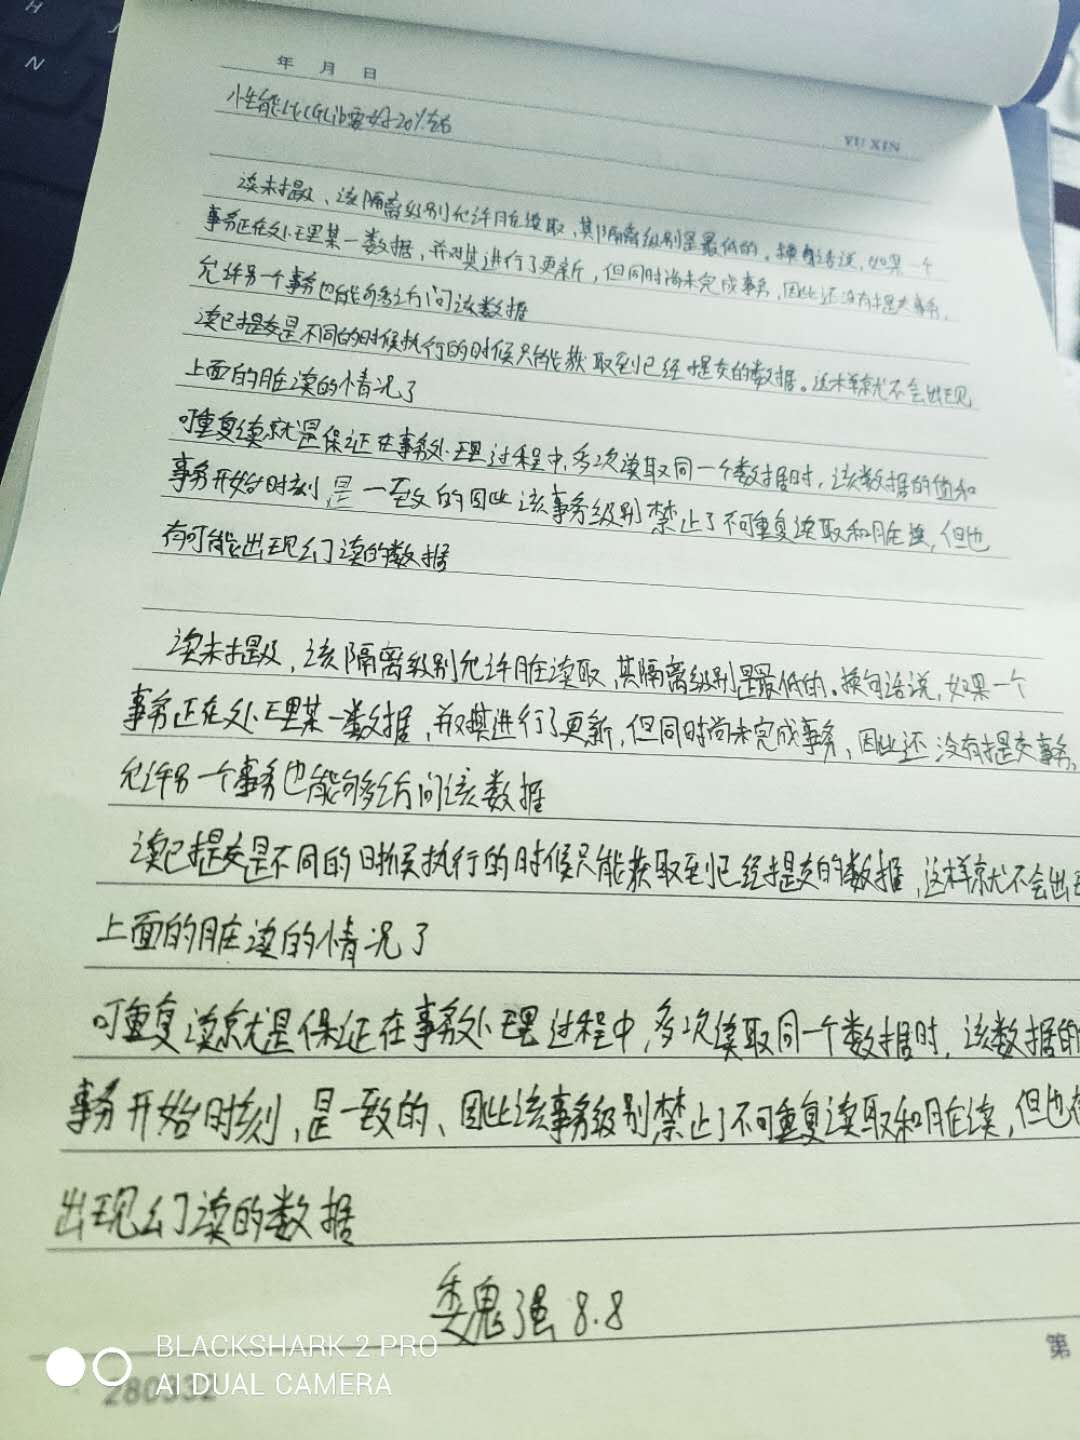 H
N
年 月 日
YU XIN
性能比CGLib要好20%左右
读未提及、该隔离级别允许脏读取,其隔离级别是最低的。换句话说,如果一个
事务正在处理某一数据,并对其进行了更新,但同时尚未完成事务,因此还没有提交事务,
允许另一个事务也能够访问该数据
读已提交是不同的时候执行的时候只能获取到已经提交的数据。这样就不会出现
上面的脏读的情况了
可重复读就是保证在事务处理过程中,多次读取同一个数据时,该数据的值和
事务开始时刻是一致的因此该事务级别禁止了不可重复读取和脏读,但也
有可能出现幻读的数据
读未提及,该隔离级别允许脏读取,其隔离级别是最低的。换句话说,如果一个
事务正在处理某一数据,并对其进行了更新,但同时尚未完成事务,因此还没有提交事务,
允许另一个事务也能够访问该数据
读已提交是不同的时候执行的时候只能获取到已经提交的数据,这样就不会出现
上面的脏读的情况了
可重复读就是保证在事务处理过程中,多次读取同一个数据时,该数据的
事务开始时刻,是一致的、因此该事务级别禁止了不可重复读取和脏读,但也有
出现幻读的数据
魏强 8.8
第
BLACKSHARK 2 PRO
AI DUAL CAMERA